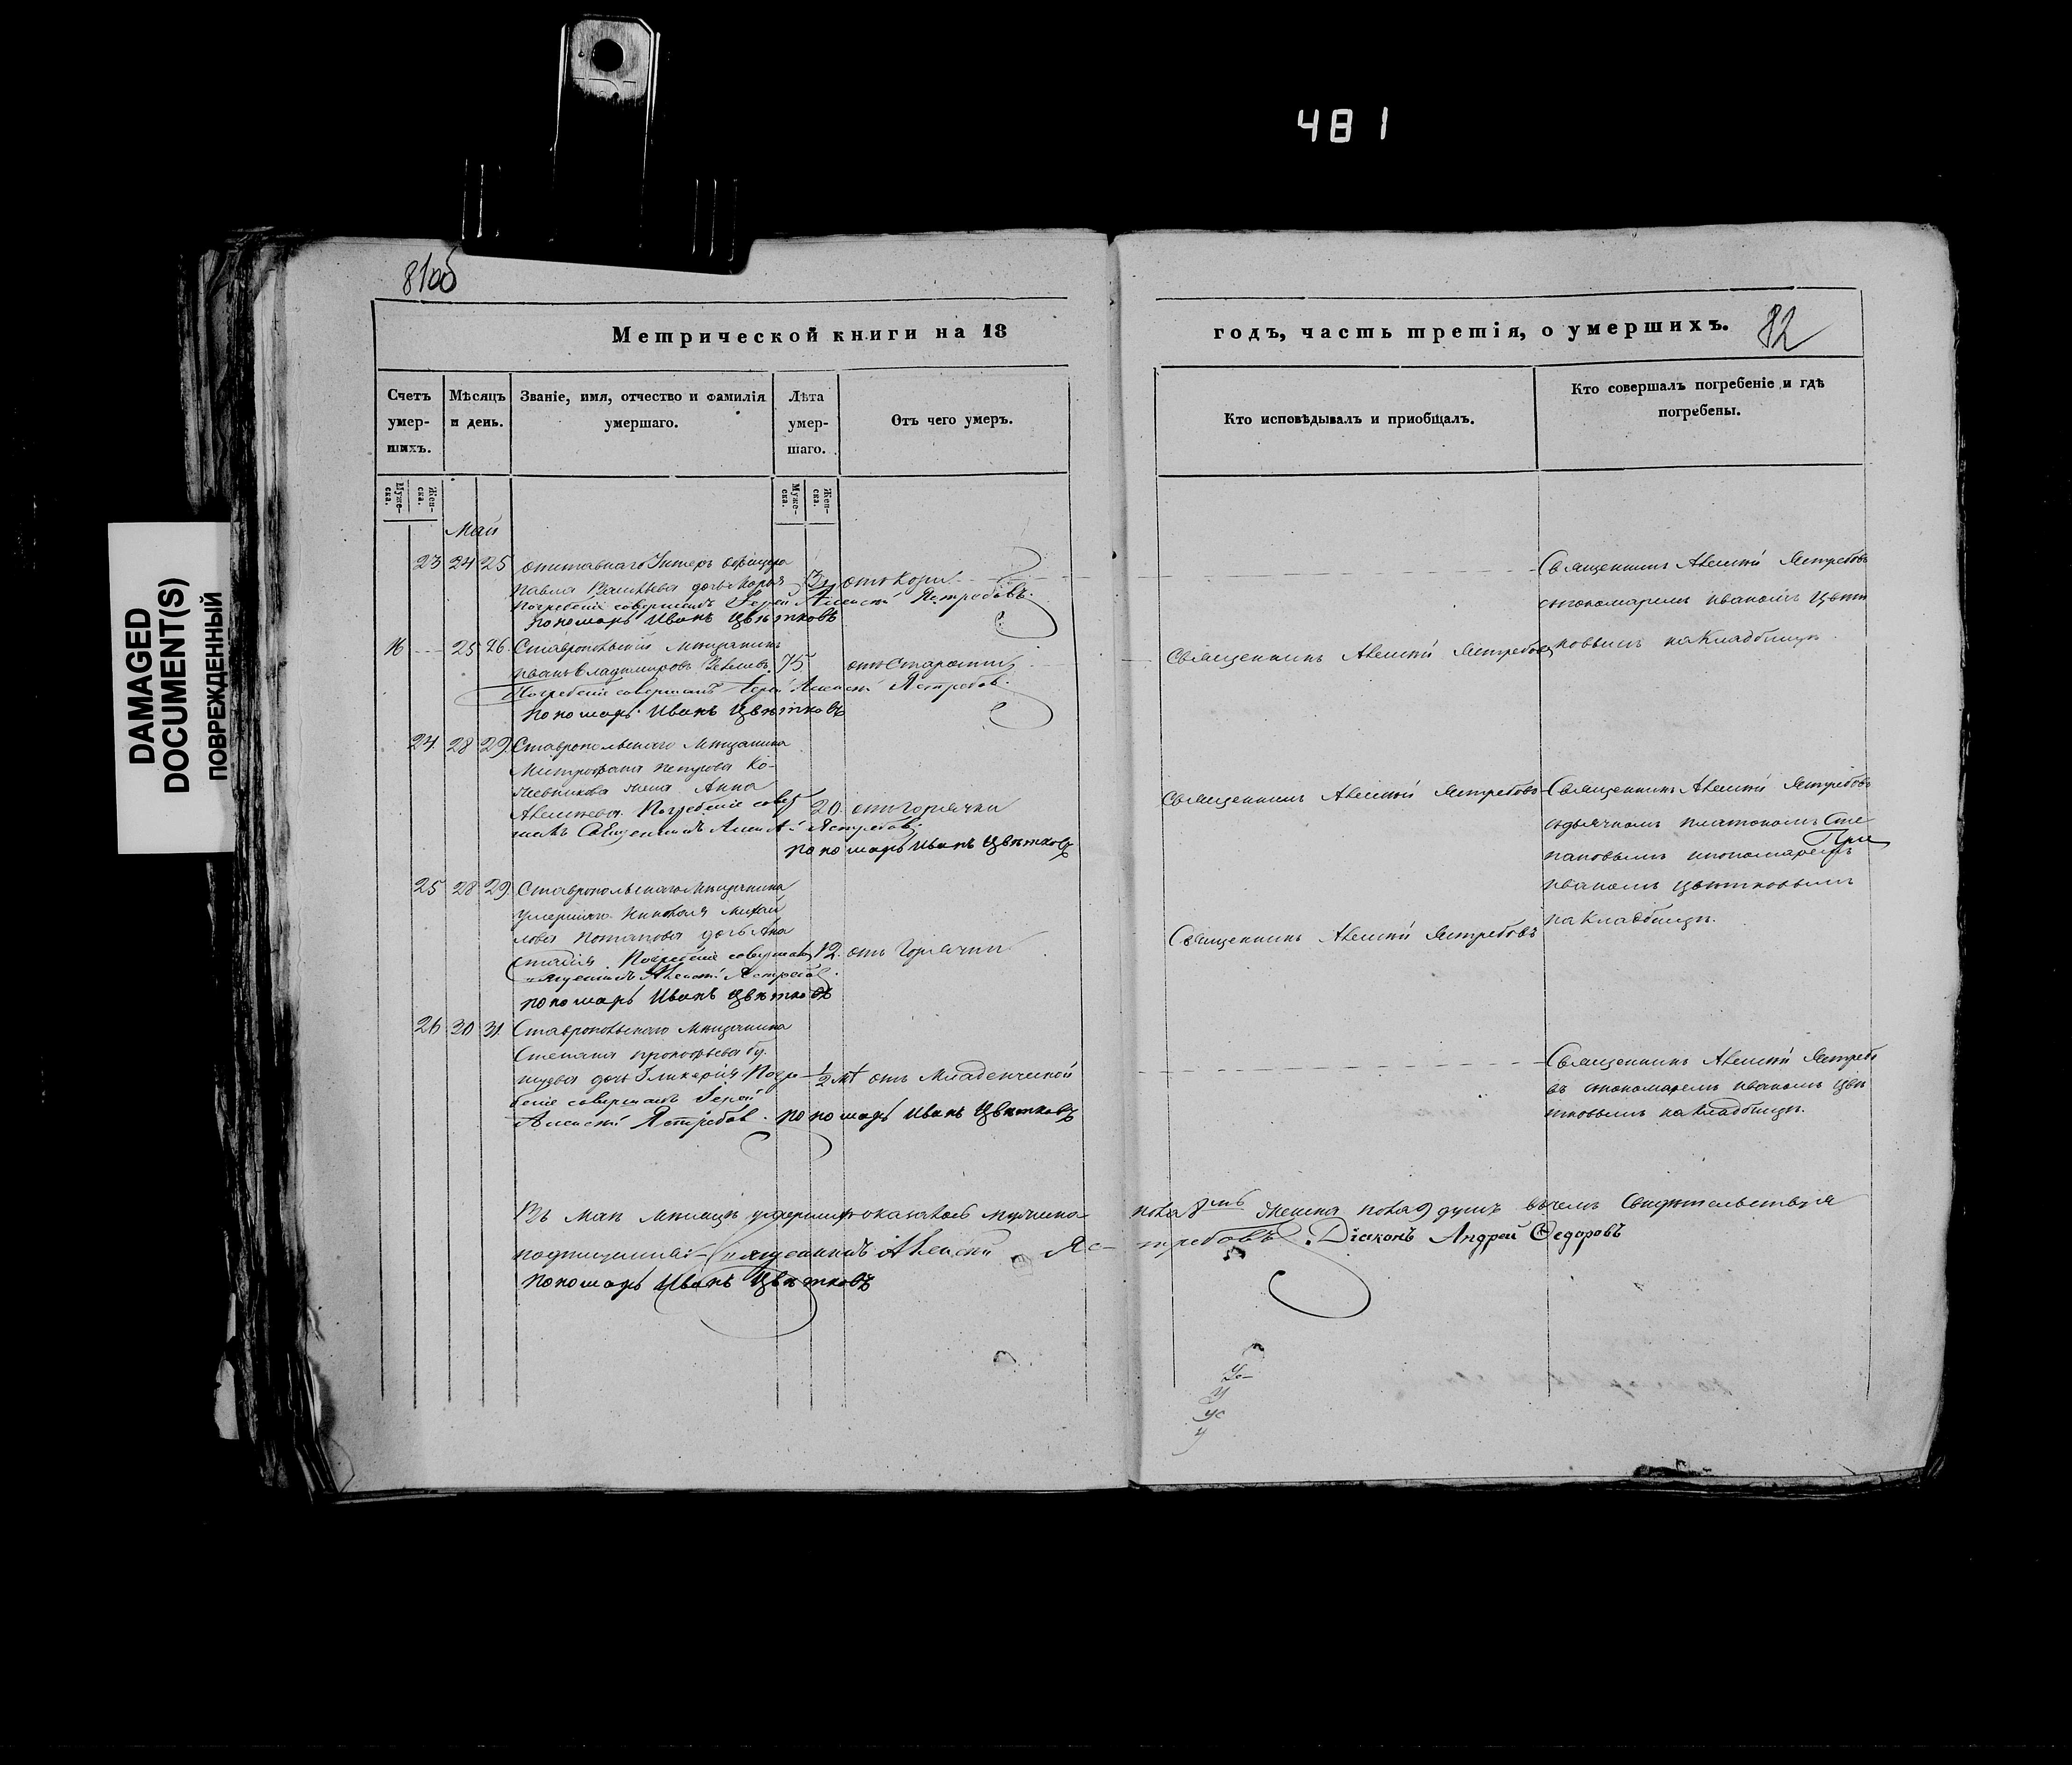 481
81об
82
DAMAGED
DOCUMENT(S)
ПОВРЕЖДЕННЫЙ
Метрической книги на 18
годъ, часть третія, о умершихъ.
Счетъ умер-шихъ.
Мѣсяцъ и день.
Званіе, имя, отчество и фамилія умершаго.
Лѣта умер-шаго.
Отъ чего умеръ.
Кто исповѣдывалъ и приобщалъ.
Кто совершалъ погребеніе и гдѣ погребены.
Муже-ска.
Жен-ска.
Муже-ска.
Жен-ска.
Май
23 24 25 отставнаго Унтеръ Офицера
Павла Васильева дочь отъ Кори
Погребеніе совершалъ Іерей Алексѣй Ястребовъ.
пономарь Иванъ Цвѣтковъ
Священникъ Алексѣй Ястребовъ
съ пономаремъ Иваномъ Цвѣт
ковымъ на Кладбищѣ.
16 25 26 Ставропольскій Мѣщанинъ
Иванъ Владимировъ 75 отъ Старости
Погребеніе совершалъ Іерей Алексѣй Ястребовъ.
пономарь Иванъ Цвѣтковъ
Священникъ Алексѣй Ястребовъ
24 28 29 Ставропольскаго Мѣщанина
Митрофана Петрова Ко-
жевникова жена Анна
Алексѣева. Погребеніе совер 20 отъ горячки
шалъ Священникъ Алексѣй Ястребовъ.
пономарь Иванъ Цвѣтковъ
Священникъ Алексѣй Ястребовъ
Священникъ Алексѣй Ястребовъ
съ дьячкомъ Платономъ Сте
пановымъ и пономаремъ
Иваномъ Цвѣтковымъ
на Кладбищѣ.
25 28 29 Ставропольскаго Мѣщанина
умершаго Николая Михай
лова Потапова дочь Ана
стасія Погребеніе совершалъ 12 отъ Горячки
Священникъ Алексѣй Ястребовъ.
пономарь Иванъ Цвѣтковъ
Священникъ Алексѣй Ястребовъ
26 30 31 Ставропольскаго Мѣщанина
Степана Прокофьева Бу-
дочь Гликерія Погре- 1/2 отъ Младенческой
беніе совершалъ Іерей
Алексѣй Ястребовъ. пономарь Иванъ Цвѣтковъ
Священникъ Алексѣй Ястребо
въ съ пономаремъ Иваномъ Цвѣ
тковымъ на Кладбищѣ.
Въ Маѣ мѣсяцѣ умершихъ оказалось мужеска пола женска пола 9 душъ въ чемъ Свидѣтельствуя
подписуемся: Священникъ Алексѣй Ястребовъ. Діаконъ Андрей Ѳедоровъ
пономарь Иванъ Цвѣтковъ